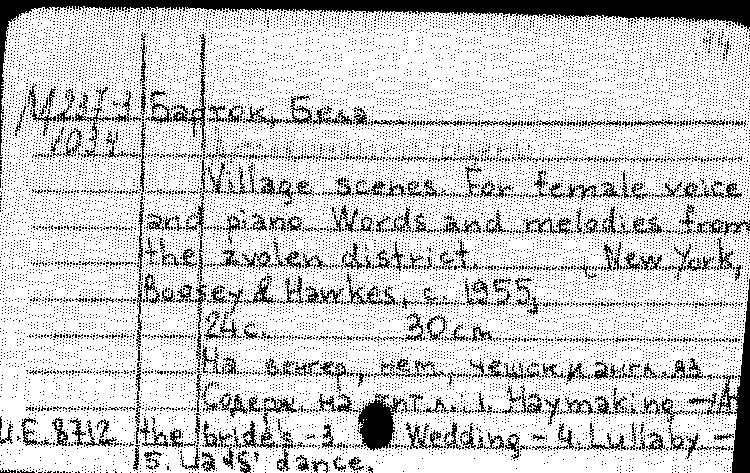 М 227-3 Барток, Бела
1034
Village scenes. For female voice
and piano Words and melodies from
the zvolen district. New York,
Boosey & Hawkes, c. 1955,
24 с. 30 см
На венгер., нем., чешск и англ. яз
Содерж. на англ. 1. Haymaking -
И.Е. 8712 the bride's -3. Wedding - 4. Lullaby -
5. Lads' dance.